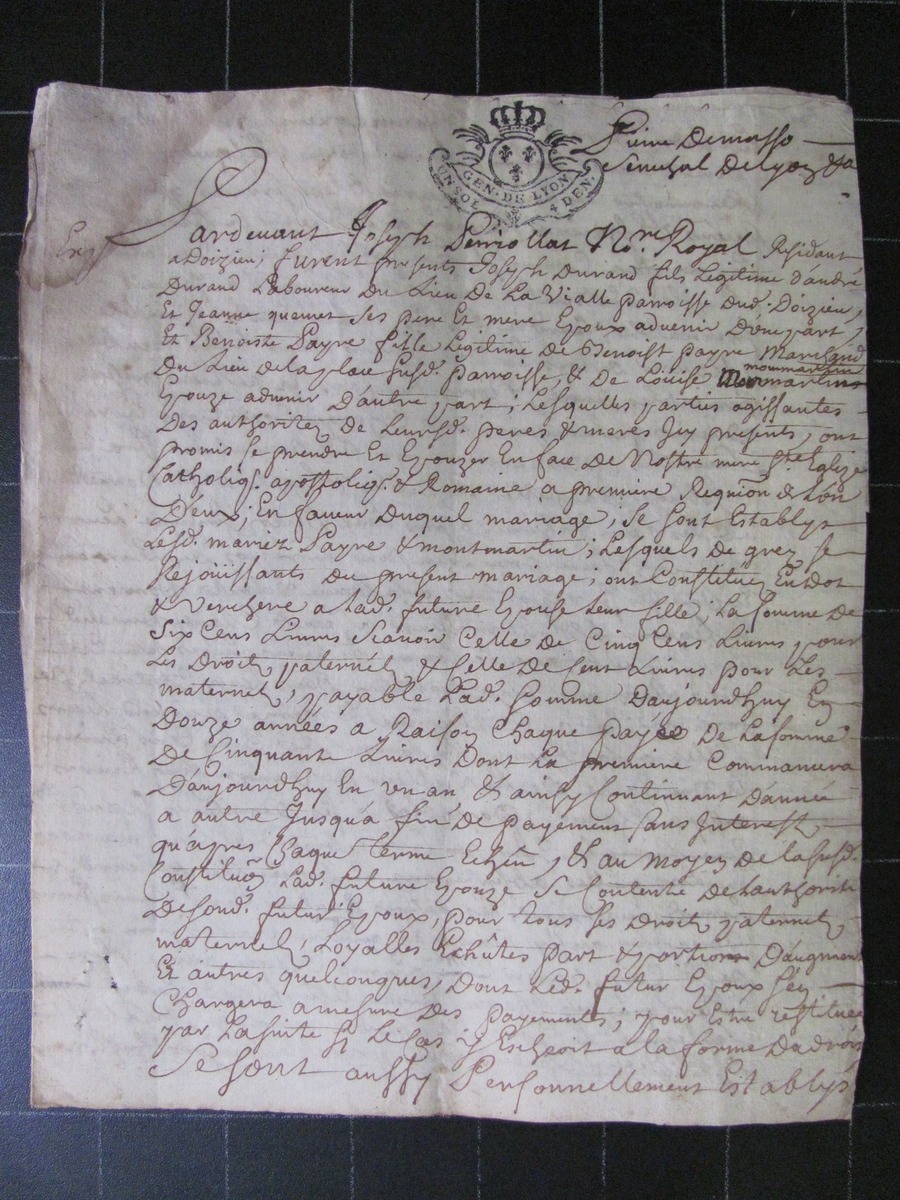 GEN. DE LYON
UN SOL 4 DEN.
Pierre Demasso
Senechal De Lyon &a
Exp
Pardevant Joseph Perriollat No.re Royal Residant
a Doizieu; furent presents Joseph Durand fils Legitime d'andré
Durand Laboureur Du Lieu De La Vialle parroisse dud. Doizieu,
Et Jeanne quemet Ses pere Et mere Epoux advenir D'une part,
Et Benoiste Payre fille Legitime de Benoist payre Marchand
Du Lieu de la place Susd. parroisse, & De Louise monmartin
Epouze advenir D'autre part; Lesquelles parties agissantes
Des authoritez de Leursd. peres & meres Icy presents, ont
promis se prendre Et Epouzer En face De Nostre mere Ste Eglize
Catholiq. apostoliq. & Romaine a premiere Requiõn de L'un
D'eux; En faveur Duquel mariage, Se sont Establys
Lesd. mariez Payre & montmartin; Lesquels de grez se
Rejoüissants du present mariage; ont Constitué En Dot
& Verchere a Lad. future Epouse Leur fille; La somme De
Six Cens Livres Scavoir Celle de Cinq Cens Livres pour
Les Droits paternels & Celle De Cent Livres pour Les
maternels, payable Lad. Somme D'aujourdhuy En
Douze années a Raison Chaque payée De La somme
De Cinquante Livres Dont La premiere Commancera
D'aujourdhuy En un an & ainsy Continuant D'année
a autre Jusqu'a fin De payement sans Interest,
qu'apres Chaque Terme Echeu, & au Moyen de la susd.
Constituõn Lad. future Epouze Se Contente De L'authorité
De sond. futur Epoux, pour tous ses Droits paternels,
maternels, Loyalles Echûtes part & portions D'augment
Et autres quelconques, Dont Led. futur Epoux s'en
Chargera a mesure Des payements; pour Estre restituée
par La suite Sy Le Cas y Escheoit a la forme Du droit
Se sont aussy Personnellement Establys